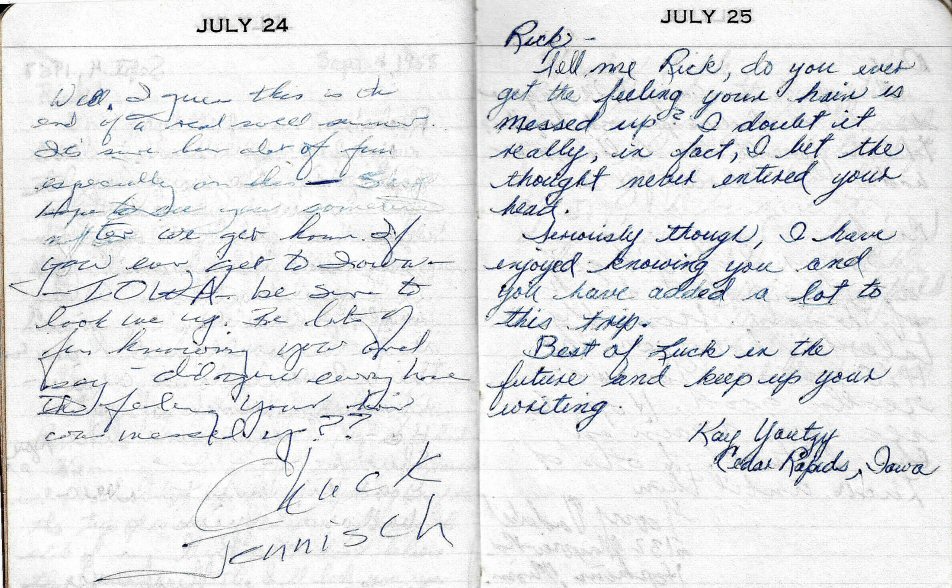 JULY 24
Well, I guess this is the
end of a real swell summer.
It's sure been alot of fun
especially on this — 
Hope to see you sometime
after we get home. If
you ever get to Iowa—
—IOWA— be sure to
look me up. Be lots of
fun knowing you and
say — did you every have
the feeling your hair
was messed up???
Chuck
Jennisch
JULY 25
Rick -
Tell me Rick, do you ever
get the feeling your hair is
messed up? I doubt it
really, in fact, I bet the
thought never entired your
head.
Seriously though, I have
enjoyed knowing you and
you have added a lot to
this trip.
Best of Luck in the
future and keep up your
writing
Kay Youtzy
Cedar Rapids, Iowa